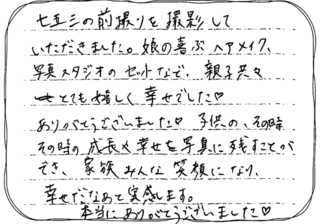 七五三の前撮りを撮影して
いただきました。娘の喜ぶヘアメイク、
写真スタジオのセットなど、親子共々
とても嬉しく幸せでした♡
ありがとうございました♡ 子供の、その時
その時の成長や幸せを写真に残すことが
でき、家族みんな笑顔になり、
幸せだなあと実感します。
本当にありがとうございました♡